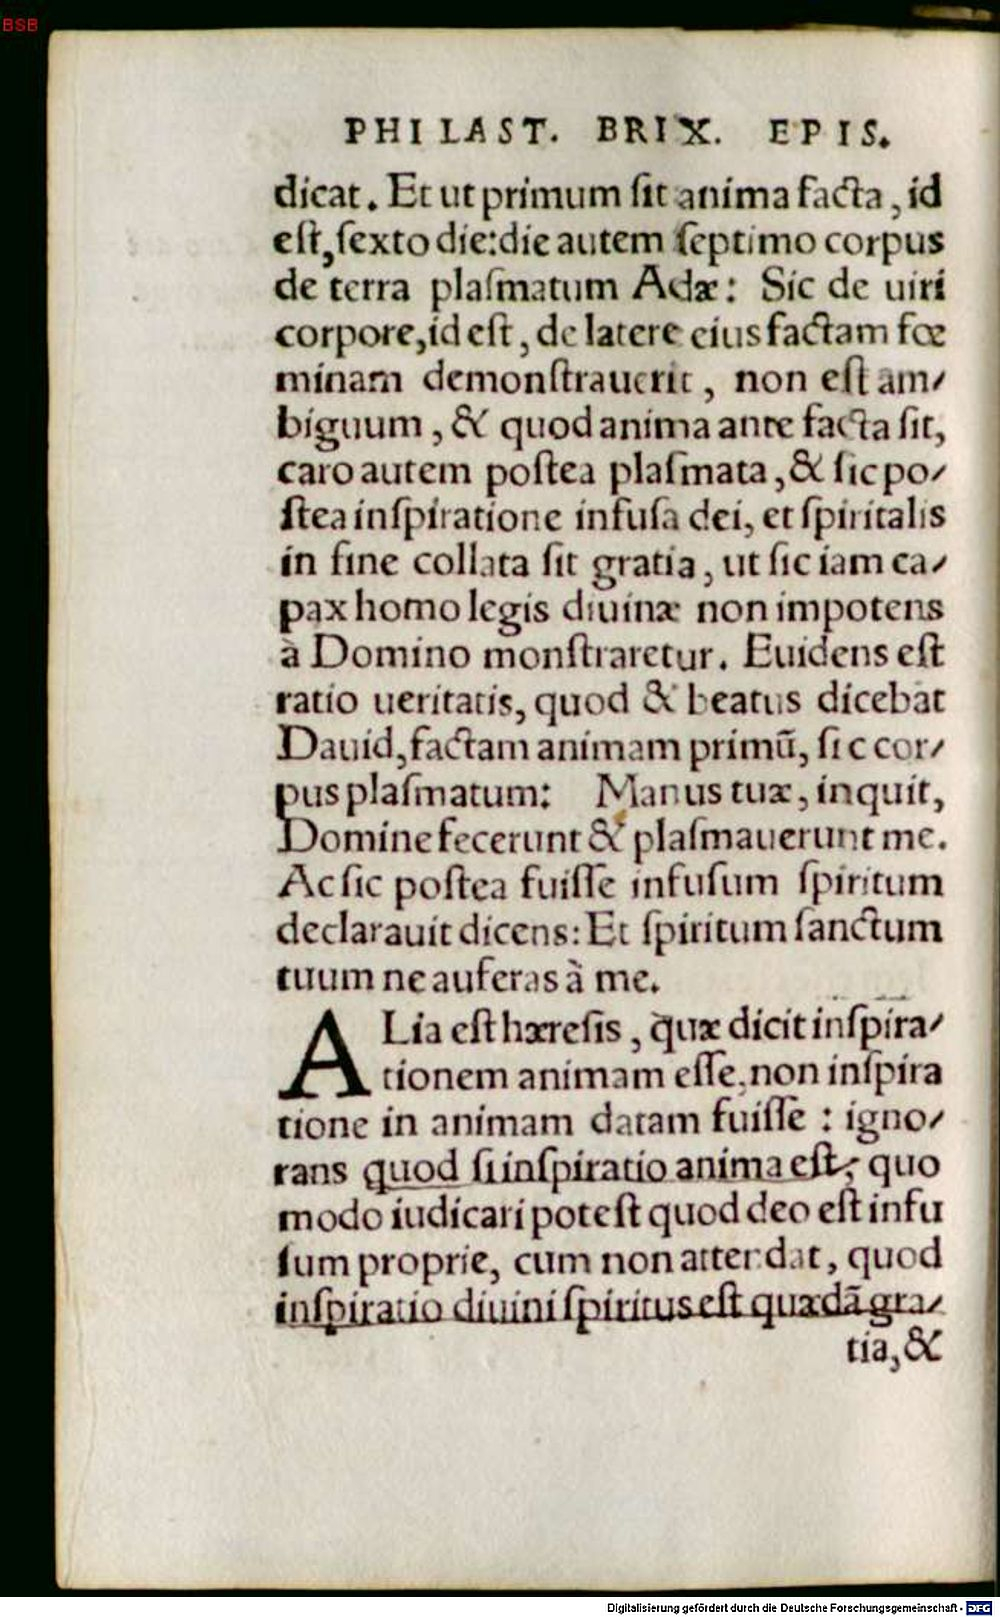 BSB
PHILAST. BRIX. EPIS.
dicat. Et ut primum ſit anima facta, id
eſt, ſexto die: die autem ſeptimo corpus
de terra plaſmatum Adæ: Sic de uiri
corpore, id eſt, de latere eius factam fœ
minam demonſtrauerit, non eſt am/
biguum, & quod anima ante facta ſit,
caro autem poſtea plaſmata, & ſic po/
ſtea inſpiratione infuſa dei, et ſpiritalis
in fine collata ſit gratia, ut ſic iam ca/
pax homo legis diuinæ non impotens
à Domino monſtraretur. Euidens eſt
ratio ueritatis, quod & beatus dicebat
Dauid, factam animam primū, ſic cor/
pus plaſmatum: Manus tuæ, inquit,
Domine fecerunt & plaſmauerunt me.
Ac ſic poſtea fuiſſe infuſum ſpiritum
declarauit dicens: Et ſpiritum ſanctum
tuum ne auferas à me.
ALia eſt hæreſis, quæ dicit inſpira/
tionem animam eſſe, non inſpira
tione in animam datam fuiſſe: igno/
rans quod ſi inſpiratio anima eſt, quo
modo iudicari poteſt quod deo eſt infu
ſum proprie, cum non attendat, quod
inſpiratio diuini ſpiritus eſt quædā gra/
tia, &
Digitalisierung gefördert durch die Deutsche Forschungsgemeinschaft - DFG